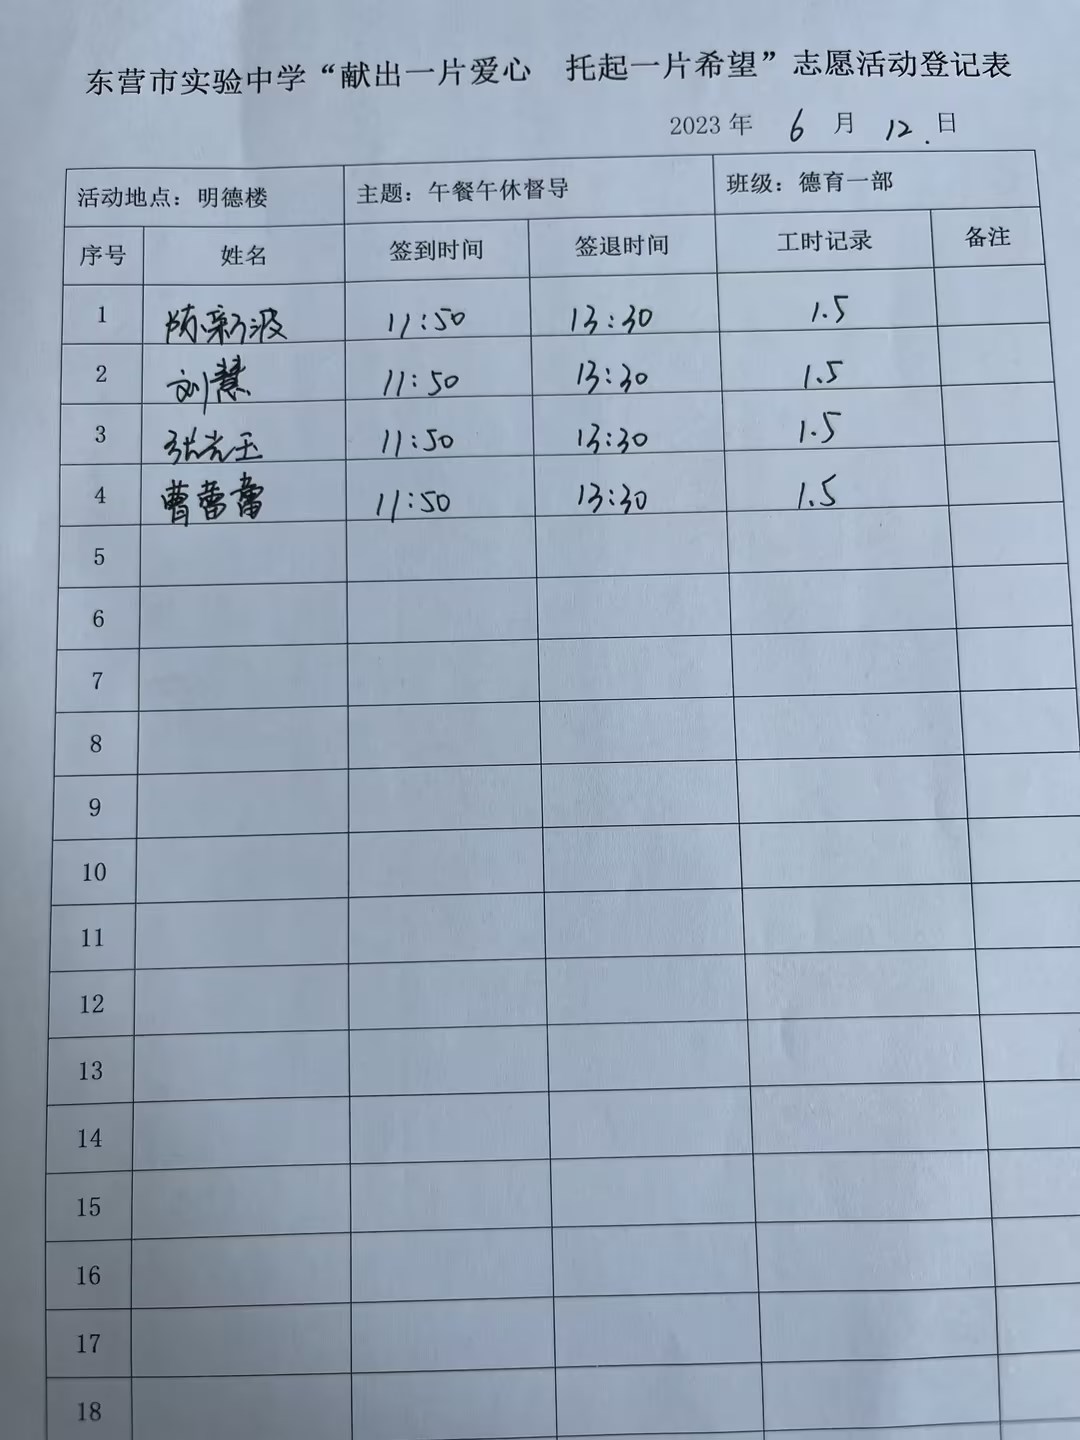 东营市实验中学“献出一片爱心 托起一片希望”志愿活动登记表
2023 年 6 月 12. 日
活动地点：明德楼 主题：午餐午休督导 班级：德育一部
序号 姓名 签到时间 签退时间 工时记录 备注
1 陈新波 11:50 13:30 1.5
2 刘慧 11:50 13:30 1.5
3 张光玉 11:50 13:30 1.5
4 曹蕾蕾 11:50 13:30 1.5
5
6
7
8
9
10
11
12
13
14
15
16
17
18